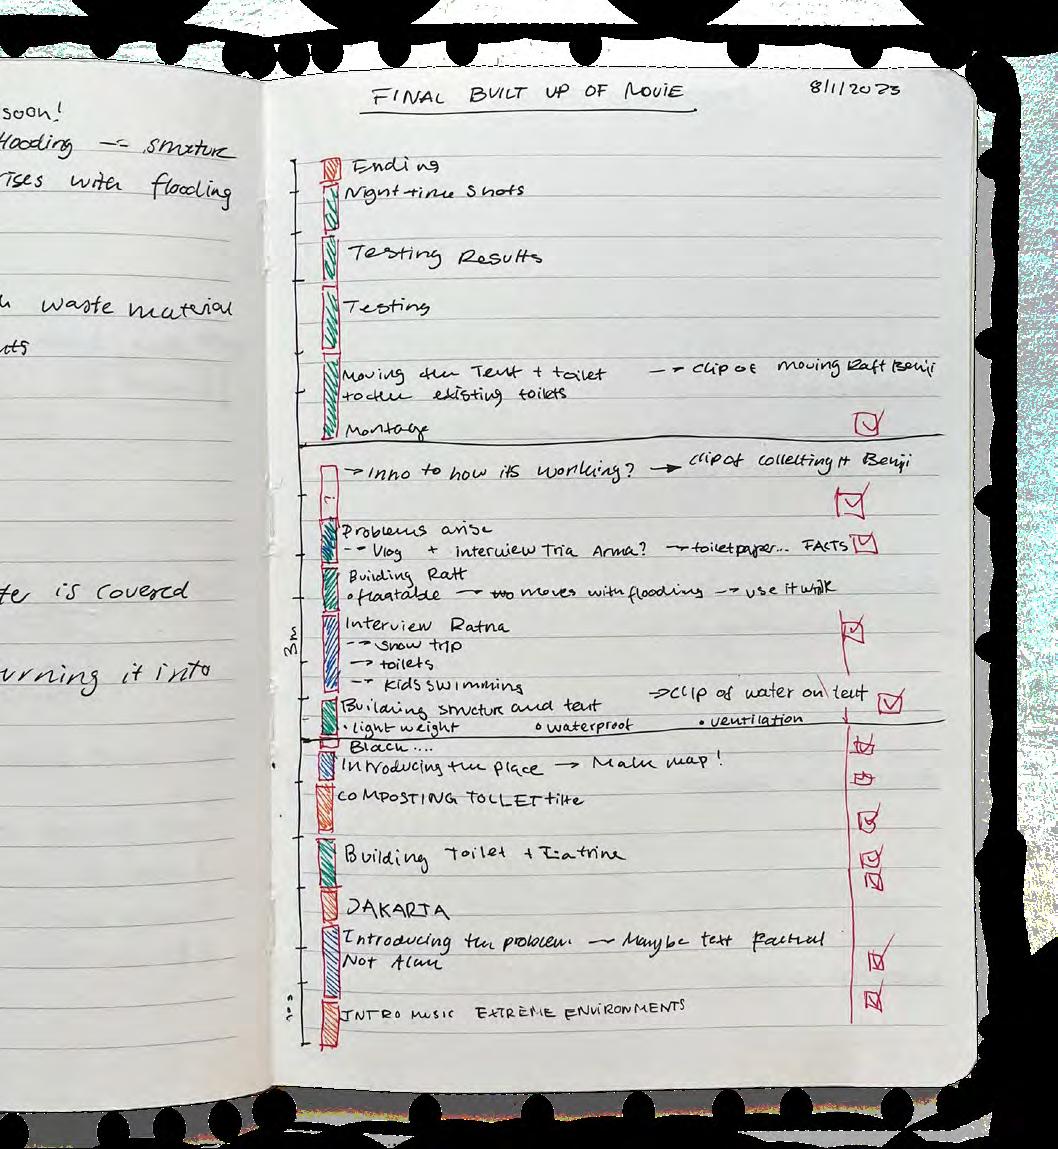 soon!
flooding -- structure
rises with flooding
waste material
is covered
turning it into
FINAL BUILT UP OF MOVIE
8/1/2023
Ending
Night time shots
Testing Results
Testing
Moving the Tent + toilet → clip of moving Raft Benji
to the existing toilets
Montage
→ Inno to how its working? → clip of collecting it Benji
?
Problems arise
-- Vlog + interview Tria Arma? → toiletpaper... FACTS
Building Raft
• floatable → moves with flooding → use it while
Interview Ratna
→ show trip
→ toilets
→ kids swimming
3m
→ clip of water on tent
Building structure and tent
• light weight • waterproof • ventilation
Black....
Introducing the place → Make map!
COMPOSTING TOILET title
Building Toilet + Latrine
JAKARTA
Introducing the problem → Maybe text factual
Not Alan
INTRO MUSIC EXTREME ENVIRONMENTS